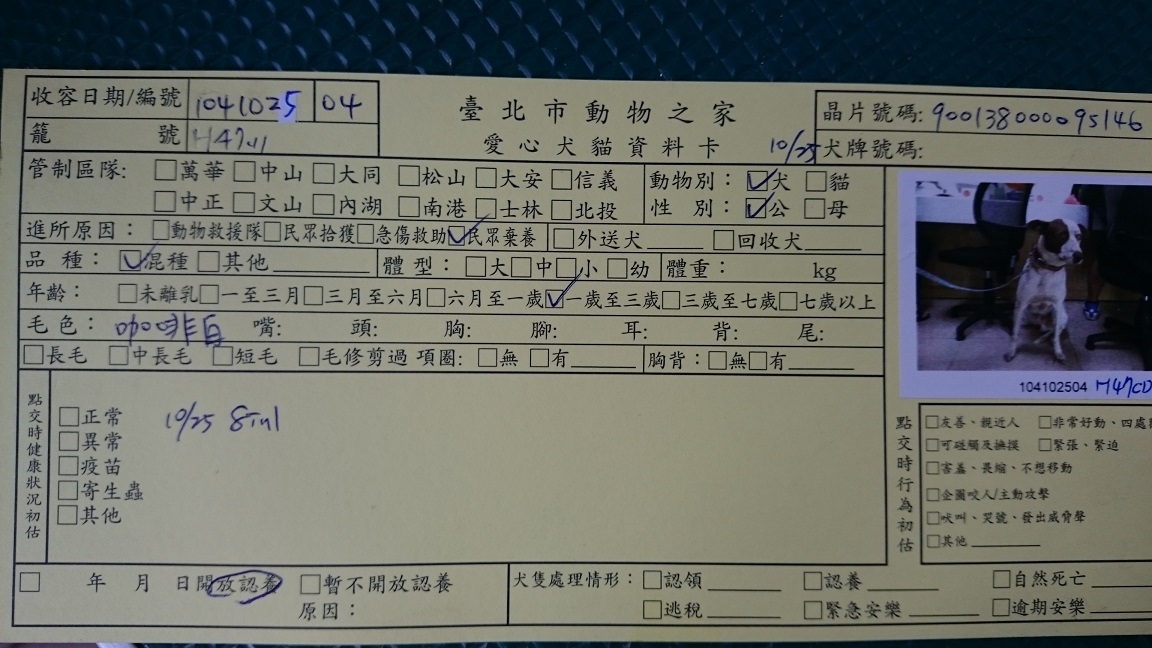 收容日期/編號 1041025 04
臺北市動物之家
晶片號碼: 900138000095146
籠 號
愛心犬貓資料卡 10/25
犬牌號碼:
管制區隊: □萬華 □中山 □大同 □松山 □大安 □信義
動物別： ☑犬 □貓
□中正 □文山 □內湖 □南港 □士林 □北投
性 別： ☑公 □母
進所原因： □動物救援隊 □民眾拾獲 □急傷救助 ☑民眾棄養 □外送犬____ □回收犬____
品 種： ☑混種 □其他________ 體 型： □大 □中 □小 □幼 體重： kg
年齡： □未離乳 □一至三月 □三月至六月 □六月至一歲 ☑一歲至三歲 □三歲至七歲 □七歲以上
毛 色： 咖啡白 嘴: 頭: 胸: 腳: 耳: 背: 尾:
□長毛 □中長毛 □短毛 □毛修剪過 項圈: □無 □有____ 胸背: □無 □有____
104102504
點交時健康狀況初估
□正常 10/25
□異常
□疫苗
□寄生蟲
□其他
點交時行為初估
□友善、親近人 □非常好動、四處
□可碰觸及撫摸 □緊張、緊迫
□害羞、畏縮、不想移動
□企圖咬人/主動攻擊
□吠叫、哭號、發出威脅聲
□其他________
□ 年 月 日開放認養 □暫不開放認養
原因：
犬隻處理情形： □認領______ □認養______ □自然死亡____
□逃脫______ □緊急安樂______ □逾期安樂____